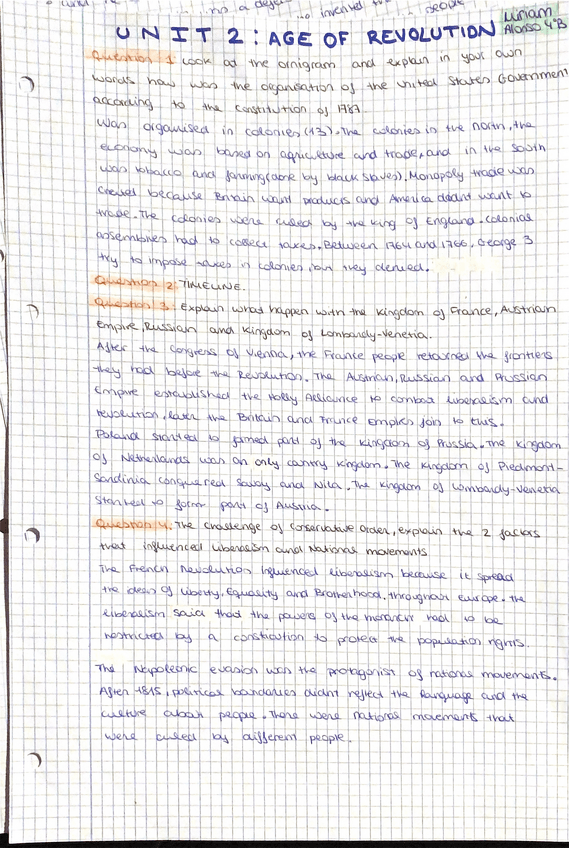 invented people
UNIT 2: AGE OF REVOLUTION Miriam
Alonso 4ºB
Question 1 Look at the ornigram and explain in your own
words how was the organisation of the United States Government
according to the constitution of 1787.
Was organised in colonies (13). The colonies in the north, the
economy was based on agriculture and trade, and in the south
was tobacco and farming (done by black slaves). Monopoly trade was
created because Britain want products and America didnt want to
trade. The colonies were ruled by the king of England. Colonial
assemblies had to collect taxes. Between 1764 and 1766, George 3
try to impose taxes in colonies, but they denied.
Question 2: TIMELINE.
Question 3: Explain what happen with the Kingdom of France, Austrian
Empire, Russian and Kingdom of Lombardy-Venetia.
After the Congress of Vienna, the France people returned the frontiers
they had before the Revolution. The Austrian, Russian and Prussian
Empire established the Holly Alliance to combat liberalism and
revolution, later the Britain and France empires join to this.
Poland started to formed part of the Kingdom of Prussia. The Kingdom
of Netherlands was an only country kingdom. The Kingdom of Piedmont-
Sardinia conquered Savoy and Nila. The Kingdom of Lombardy-Venetia
started to form part of Austria.
Question 4: The challenge of conservative Order, explain the 2 factors
that influenced liberalism and National movements
The French Revolution influenced liberalism because it spread
the ideas of liberty, Equality and Brotherhood, throughout Europe. The
liberalism said that the powers of the monarch had to be
restricted by a constitution to protect the population rights.
The Napoleonic evasion was the protagonist of national movements.
After 1815, political boundaries didnt reflect the language and the
culture about people. There were national movements that
were ruled by different people.